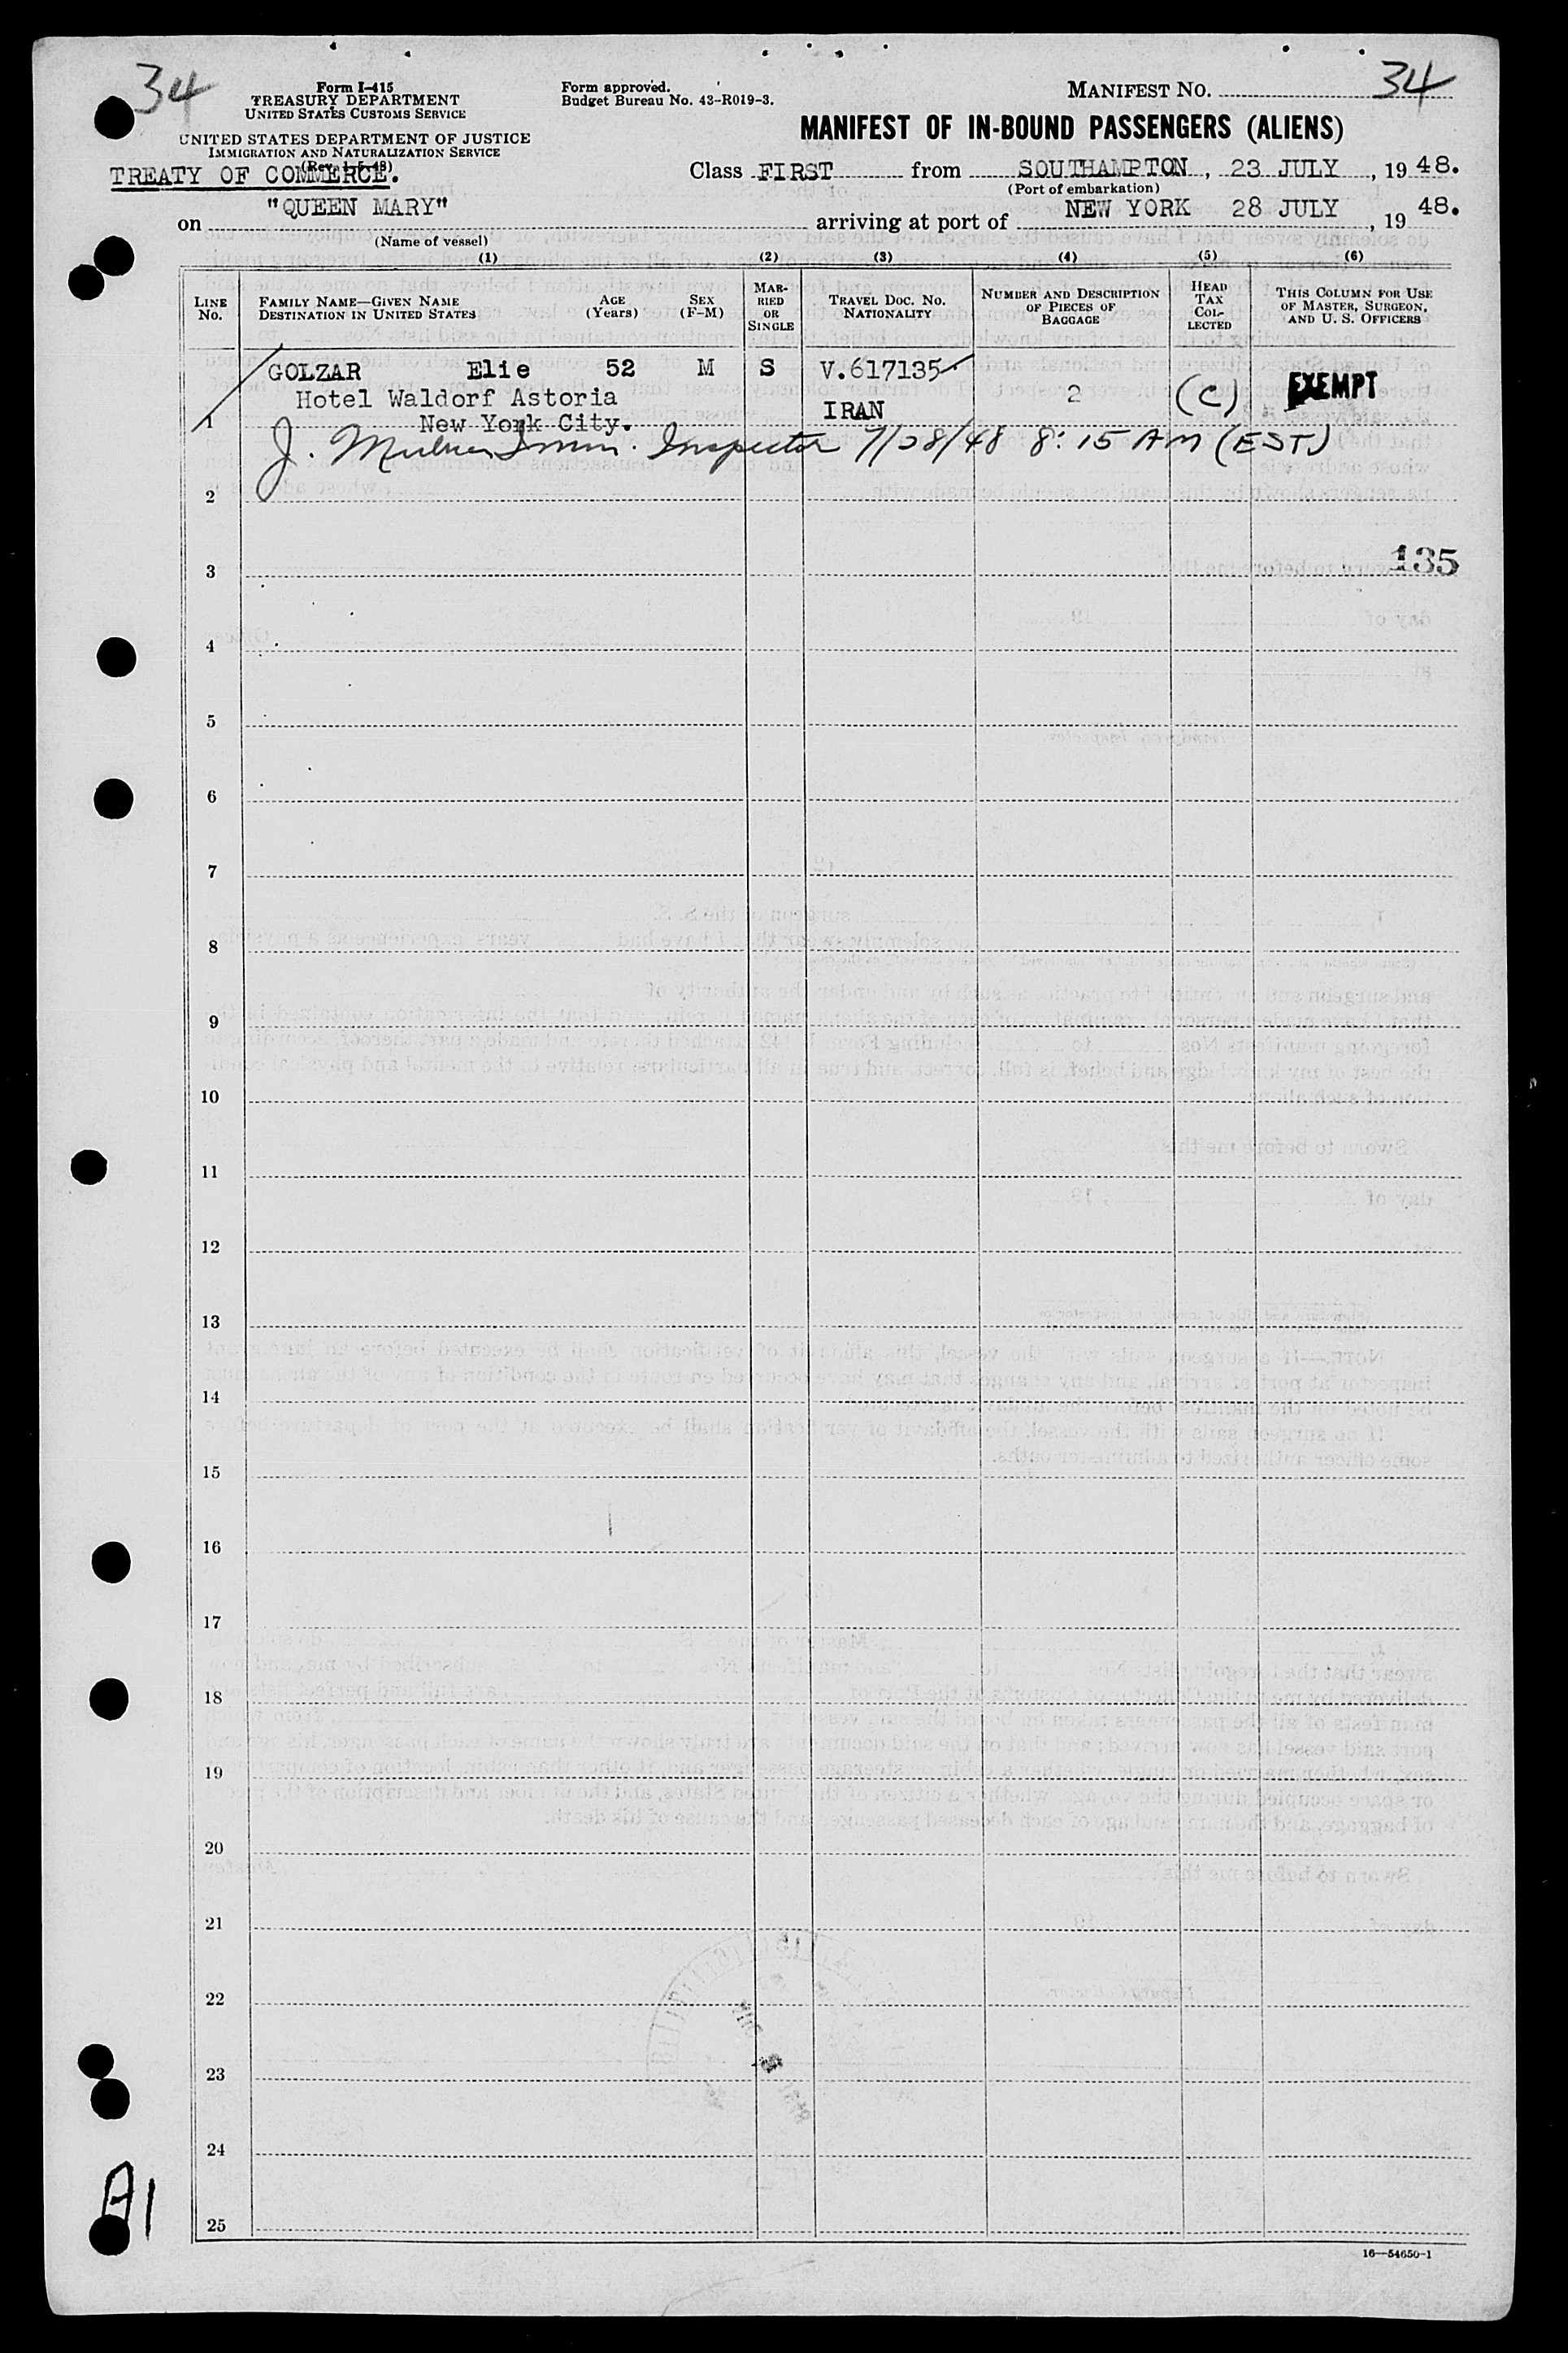 34
Form I-415
TREASURY DEPARTMENT
UNITED STATES CUSTOMS SERVICE
UNITED STATES DEPARTMENT OF JUSTICE
IMMIGRATION AND NATURALIZATION SERVICE
(Rev. 1-5-48)
TREATY OF COMMERCE.
Form approved.
Budget Bureau No. 43-R019-3.
MANIFEST NO. 34
MANIFEST OF IN-BOUND PASSENGERS (ALIENS)
Class FIRST from SOUTHAMPTON, 23 JULY, 1948.
(Port of embarkation)
on "QUEEN MARY" arriving at port of NEW YORK 28 JULY, 1948.
(Name of vessel)
(1) (2) (3) (4) (5) (6)
LINE No.
FAMILY NAME—GIVEN NAME
DESTINATION IN UNITED STATES
AGE (Years)
SEX (F-M)
MARRIED OR SINGLE
TRAVEL DOC. NO.
NATIONALITY
NUMBER AND DESCRIPTION OF PIECES OF BAGGAGE
HEAD TAX COLLECTED
THIS COLUMN FOR USE OF MASTER, SURGEON, AND U. S. OFFICERS
GOLZAR Elie 52 M S V.617135
Hotel Waldorf Astoria IRAN 2 (C) EXEMPT
1 New York City.
J. Immn. Inspector 7/28/48 8:15 AM (EST)
2
135
3
4
5
6
7
8
9
10
11
12
13
14
15
16
17
18
19
20
21
22
23
24
A1
25
16—54650-1